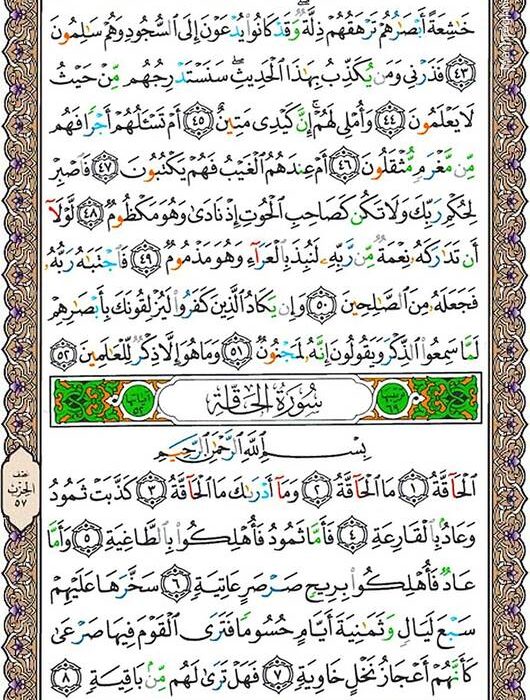 خَٰشِعَةً أَبْصَٰرُهُمْ تَرْهَقُهُمْ ذِلَّةٌ ۖ وَقَدْ كَانُوا۟ يُدْعَوْنَ إِلَى ٱلسُّجُودِ وَهُمْ سَٰلِمُونَ
٤٣ فَذَرْنِى وَمَن يُكَذِّبُ بِهَٰذَا ٱلْحَدِيثِ ۖ سَنَسْتَدْرِجُهُم مِّنْ حَيْثُ
لَا يَعْلَمُونَ ٤٤ وَأُمْلِى لَهُمْ ۚ إِنَّ كَيْدِى مَتِينٌ ٤٥ أَمْ تَسْـَٔلُهُمْ أَجْرًا فَهُم
مِّن مَّغْرَمٍ مُّثْقَلُونَ ٤٦ أَمْ عِندَهُمُ ٱلْغَيْبُ فَهُمْ يَكْتُبُونَ ٤٧ فَٱصْبِرْ
لِحُكْمِ رَبِّكَ وَلَا تَكُن كَصَاحِبِ ٱلْحُوتِ إِذْ نَادَىٰ وَهُوَ مَكْظُومٌ ٤٨ لَّوْلَآ
أَن تَدَٰرَكَهُۥ نِعْمَةٌ مِّن رَّبِّهِۦ لَنُبِذَ بِٱلْعَرَآءِ وَهُوَ مَذْمُومٌ ٤٩ فَٱجْتَبَٰهُ رَبُّهُۥ
فَجَعَلَهُۥ مِنَ ٱلصَّٰلِحِينَ ٥٠ وَإِن يَكَادُ ٱلَّذِينَ كَفَرُوا۟ لَيُزْلِقُونَكَ بِأَبْصَٰرِهِمْ
لَمَّا سَمِعُوا۟ ٱلذِّكْرَ وَيَقُولُونَ إِنَّهُۥ لَمَجْنُونٌ ٥١ وَمَا هُوَ إِلَّا ذِكْرٌ لِّلْعَٰلَمِينَ ٥٢
ترتيبها ٦٩ سُورَةُ الحَاقَّةِ آياتها ٥٢
بِسْمِ ٱللَّهِ ٱلرَّحْمَٰنِ ٱلرَّحِيمِ
ٱلْحَآقَّةُ ١ مَا ٱلْحَآقَّةُ ٢ وَمَآ أَدْرَىٰكَ مَا ٱلْحَآقَّةُ ٣ كَذَّبَتْ ثَمُودُ
وَعَادٌۢ بِٱلْقَارِعَةِ ٤ فَأَمَّا ثَمُودُ فَأُهْلِكُوا۟ بِٱلطَّاغِيَةِ ٥ وَأَمَّا
عَادٌ فَأُهْلِكُوا۟ بِرِيحٍ صَرْصَرٍ عَاتِيَةٍ ٦ سَخَّرَهَا عَلَيْهِمْ
سَبْعَ لَيَالٍ وَثَمَٰنِيَةَ أَيَّامٍ حُسُومًا فَتَرَى ٱلْقَوْمَ فِيهَا صَرْعَىٰ
كَأَنَّهُمْ أَعْجَازُ نَخْلٍ خَاوِيَةٍ ٧ فَهَلْ تَرَىٰ لَهُم مِّنۢ بَاقِيَةٍ ٨
الحزب
٥٧